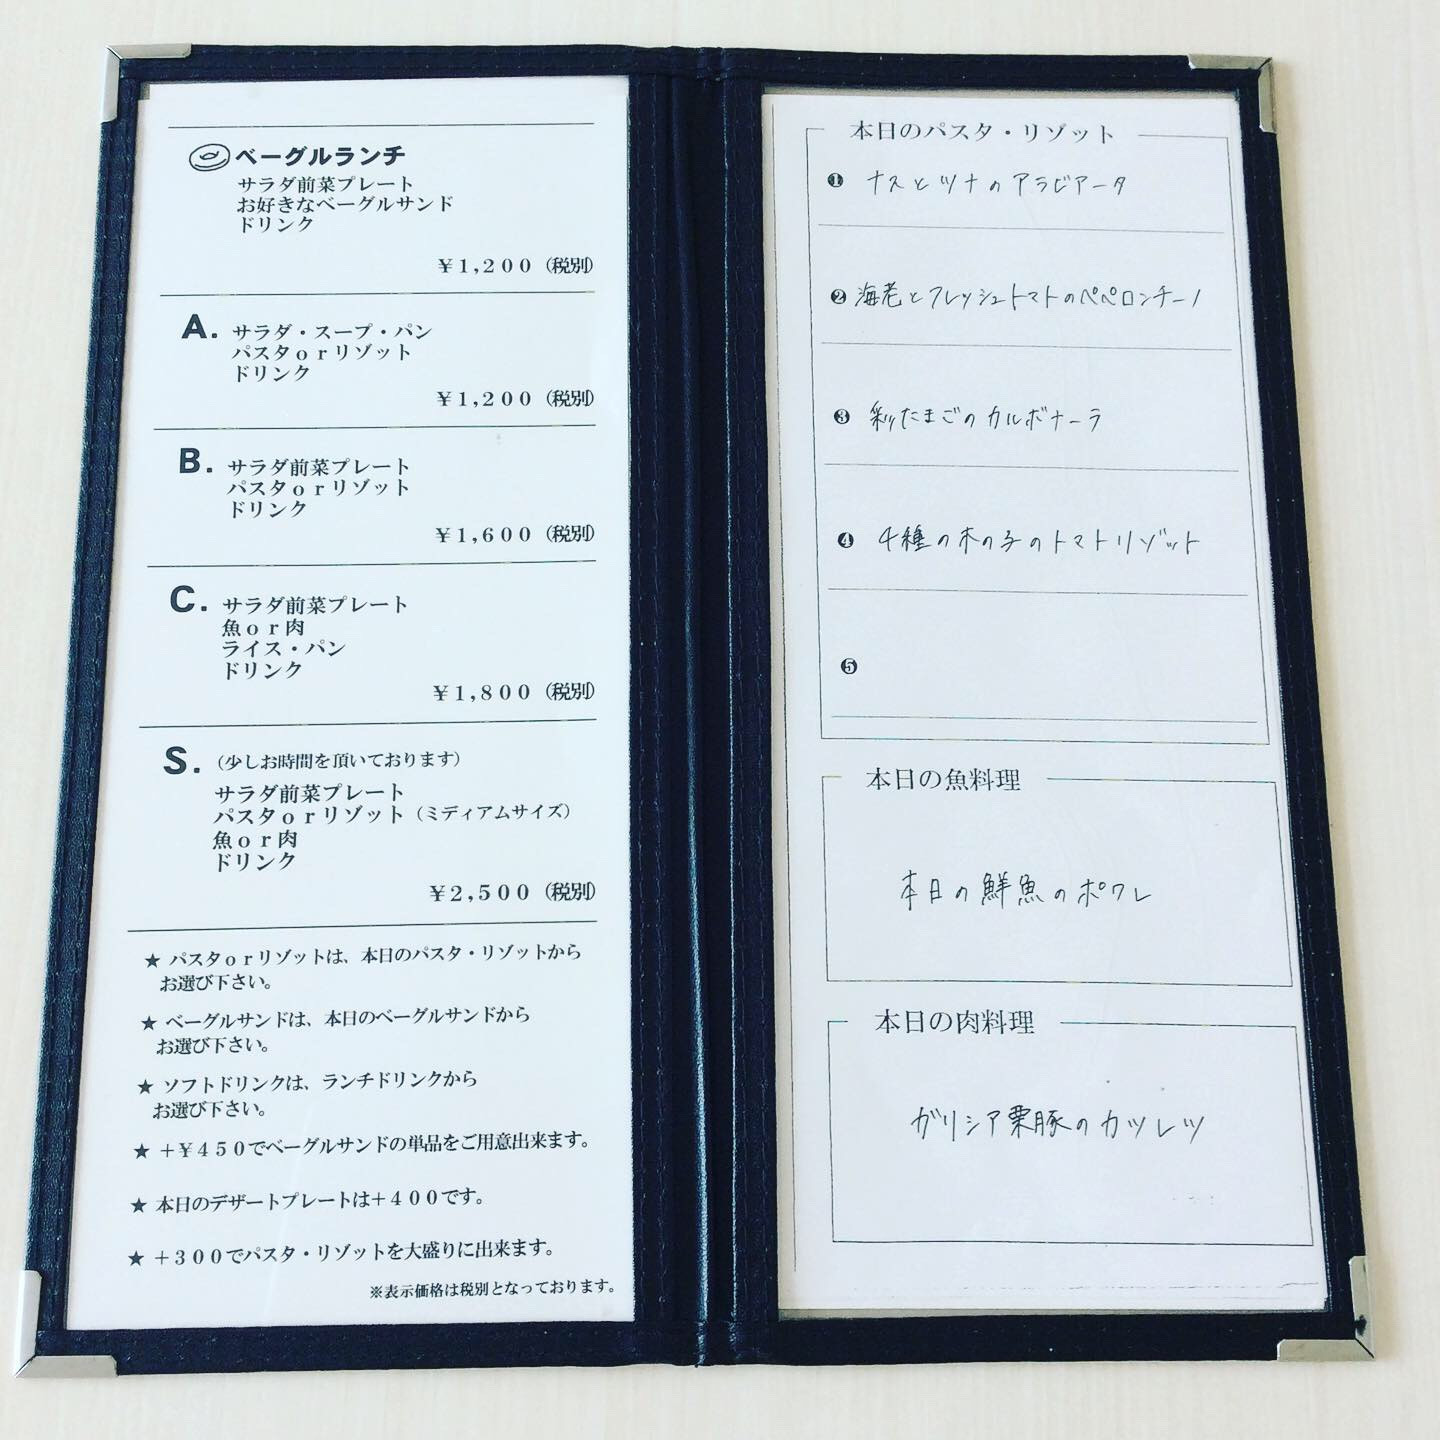 ベーグルランチ
サラダ前菜プレート
お好きなベーグルサンド
ドリンク
￥1,200（税別）
A. サラダ・スープ・パン
パスタorリゾット
ドリンク
￥1,200（税別）
B. サラダ前菜プレート
パスタorリゾット
ドリンク
￥1,600（税別）
C. サラダ前菜プレート
魚or肉
ライス・パン
ドリンク
￥1,800（税別）
S. （少しお時間を頂いております）
サラダ前菜プレート
パスタorリゾット（ミディアムサイズ）
魚or肉
ドリンク
￥2,500（税別）
★ パスタorリゾットは、本日のパスタ・リゾットから
お選び下さい。
★ ベーグルサンドは、本日のベーグルサンドから
お選び下さい。
★ ソフトドリンクは、ランチドリンクから
お選び下さい。
★ ＋￥450でベーグルサンドの単品をご用意出来ます。
★ 本日のデザートプレートは＋400です。
★ ＋300でパスタ・リゾットを大盛りに出来ます。
※表示価格は税別となっております。
本日のパスタ・リゾット
❶ ナスとツナのアラビアータ
❷ 海老とフレッシュトマトのペペロンチーノ
❸ 彩たまごのカルボナーラ
❹ 4種の木の子のトマトリゾット
❺
本日の魚料理
本日の鮮魚のポワレ
本日の肉料理
ガリシア栗豚のカツレツ